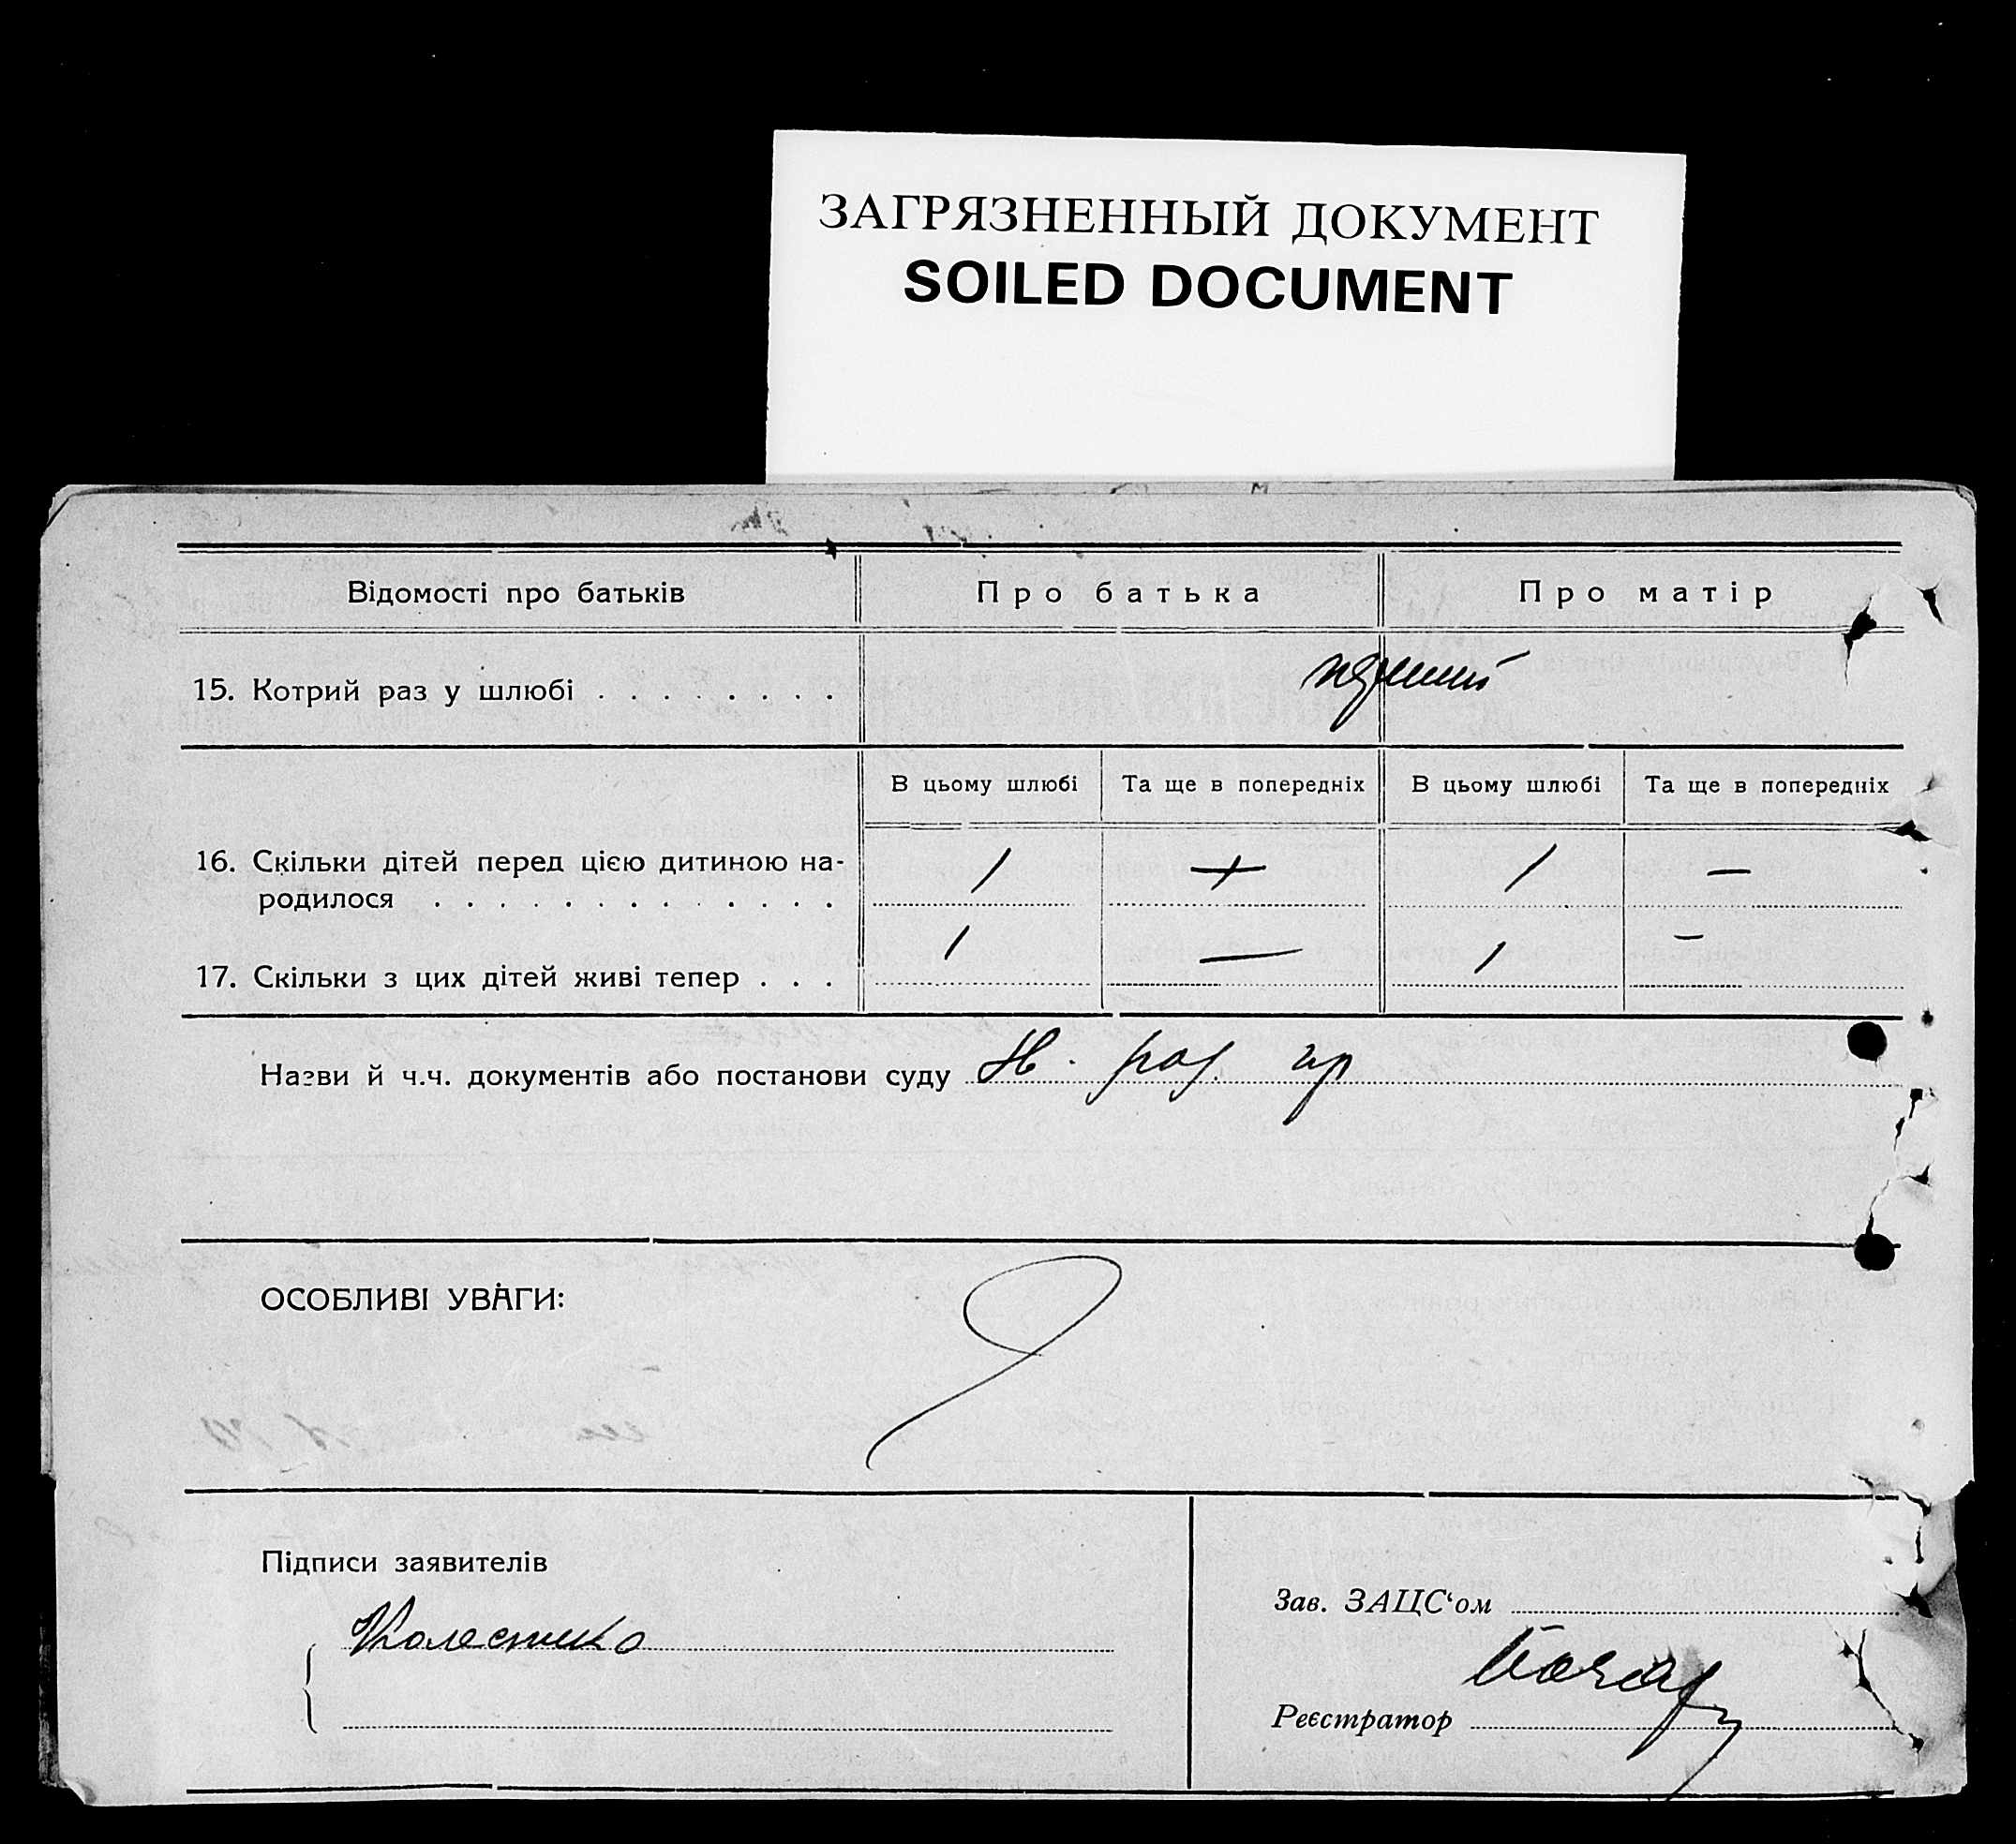 ЗАГРЯЗНЕННЫЙ ДОКУМЕНТ
SOILED DOCUMENT
Відомості про батьків Про батька Про матір
15. Котрий раз у шлюбі . . . . . . . . перший
В цьому шлюбі Та ще в попередніх В цьому шлюбі Та ще в попередніх
16. Скільки дітей перед цією дитиною на-
родилося . . . . . . . . . . . . . 1 + 1 —
17. Скільки з цих дітей живі тепер . . . 1 — 1 —
Назви й ч.ч. документів або постанови суду
ОСОБЛИВІ УВАГИ:
Підписи заявителів
Зав. ЗАЦС‘ом
Колестико
Реєстратор